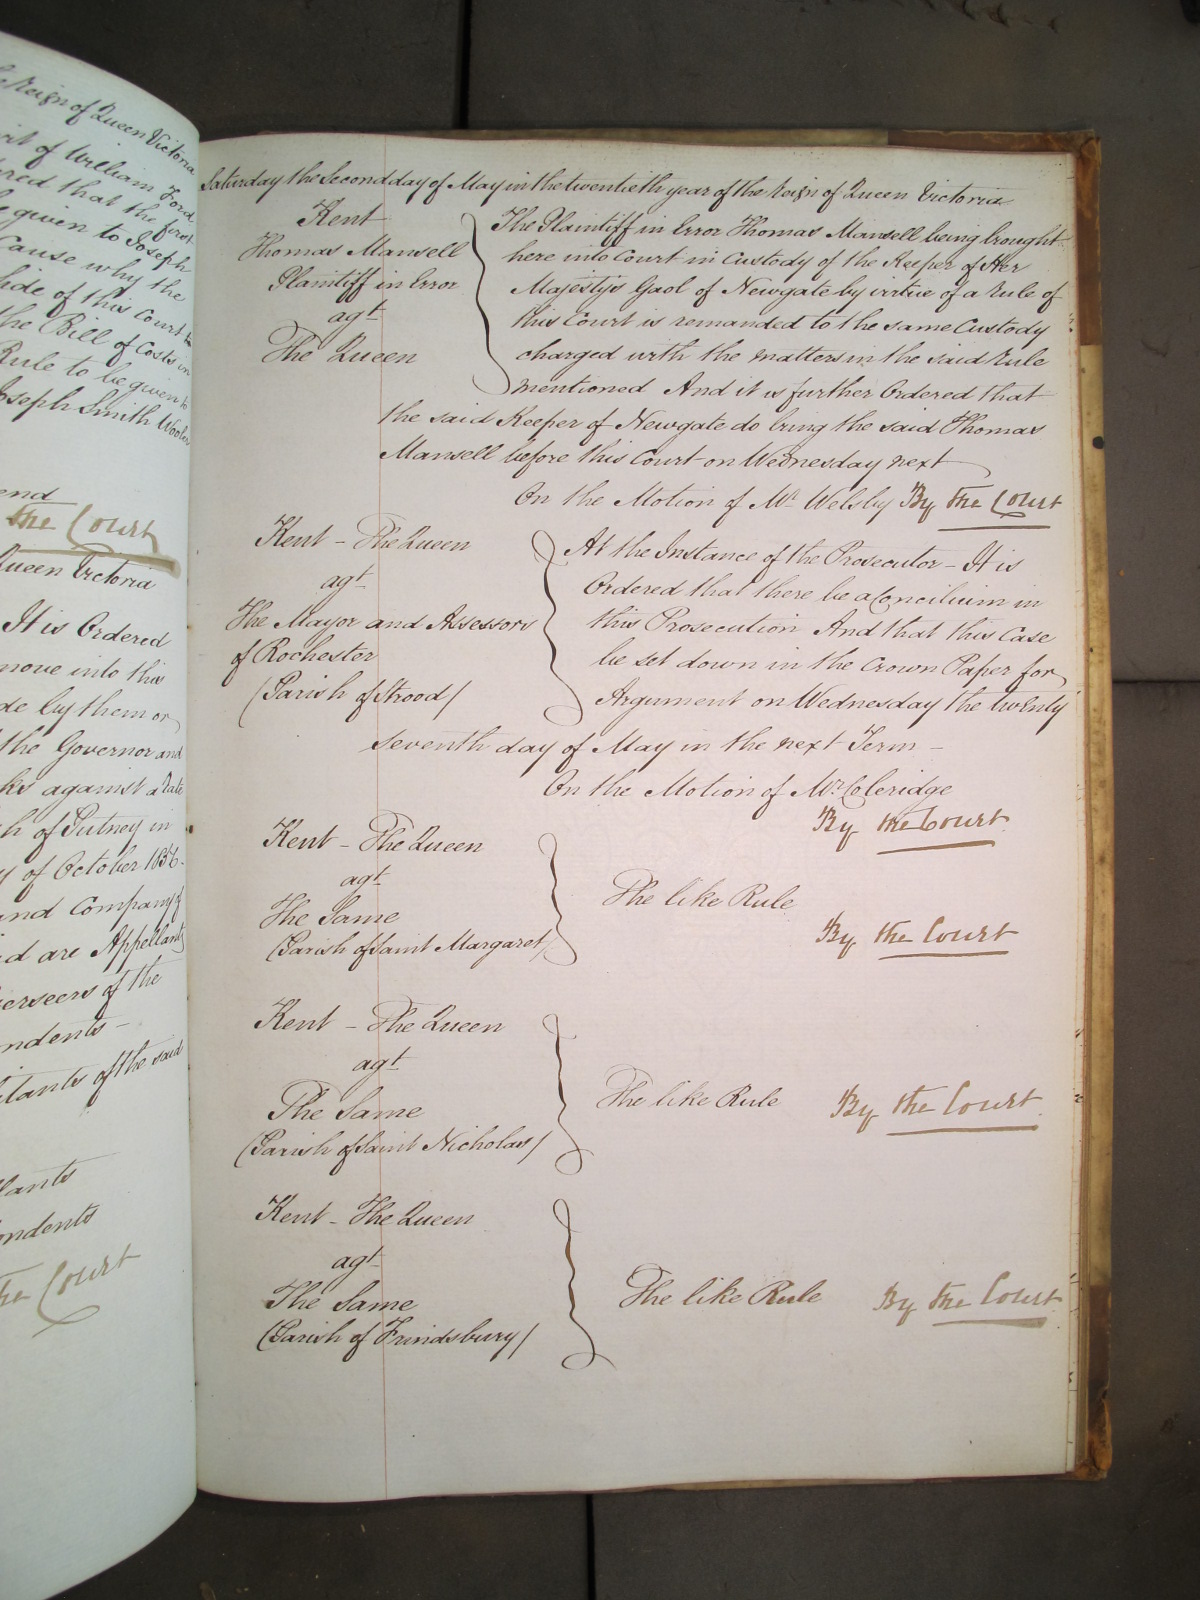 Reign of Queen Victoria
of William Ford
that the first
given to Joseph
Cause why the
side of this Court to
the Bill of Costs in
Rule to be given to
Joseph Smith
the Court
Queen Victoria
It is Ordered
move into this
by them or
the Governor and
against a Rate
of Putney in
of October 1856
and Company of
are Appellants
of the
of the said
the Court
Saturday the Second day of May in the twentieth year of the Reign of Queen Victoria
Kent
Thomas Mansell
Plaintiff in Error
agt
The Queen
The Plaintiff in Error Thomas Mansell being brought
here into Court in Custody of the Keeper of Her
Majesty's Gaol of Newgate by virtue of a Rule of
this Court is remanded to the same Custody
charged with the matters in the said Rule
mentioned And it is further Ordered that
the said Keeper of Newgate do bring the said Thomas
Mansell before this Court on Wednesday next
On the Motion of Mr Welsby By the Court
Kent - The Queen
agt
The Mayor and Assessors
of Rochester
(Parish of Strood)
At the Instance of the Prosecutor - It is
Ordered that there be a Concilium in
this Prosecution And that this Case
be set down in the Crown Paper for
Argument on Wednesday the twenty
seventh day of May in the next Term -
On the Motion of Mr Coleridge
By the Court
Kent - The Queen
agt
The Same
(Parish of Saint Margaret)
The like Rule
By the Court
Kent - The Queen
agt
The Same
(Parish of Saint Nicholas)
The like Rule By the Court
Kent - The Queen
agt
The Same
(Parish of Frindsbury)
The like Rule By the Court